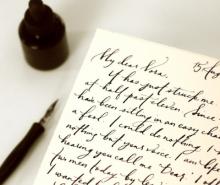 My dear Nora,
It has just struck me
at half past eleven. Since
have been sitting in an easy chair
I could do nothing
nothing but your voice. I am
hearing you call me 'Dear'. I
two men today by
I wanted